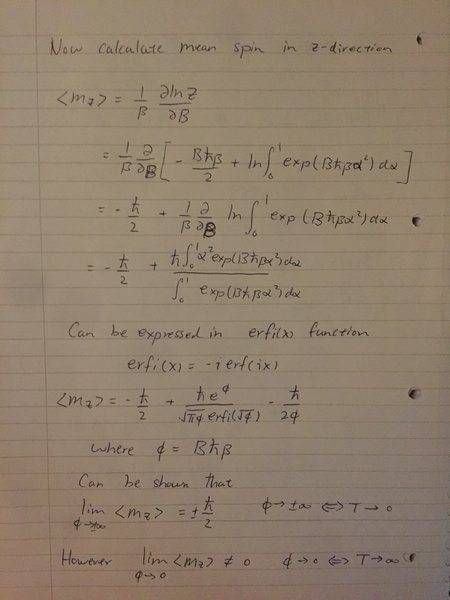 Now calculate mean spin in z-direction
<m_z> = 1/β ∂lnZ/∂B
= 1/β ∂/∂B [ - Bħβ/2 + ln ∫₀¹ exp(Bħβα²)dα ]
= - ħ/2 + 1/β ∂/∂B ln ∫₀¹ exp(Bħβα²)dα
= - ħ/2 + ħ∫₀¹ α² exp(Bħβα²)dα / ∫₀¹ exp(Bħβα²)dα
Can be expressed in erfi(x) function
erfi(x) = -i erf(ix)
<m_z> = - ħ/2 + ħe^ϕ / √πϕ erfi(√ϕ) - ħ/2ϕ
where ϕ = Bħβ
Can be shown that
lim ϕ→±∞ <m_z> = ± ħ/2 ϕ→±∞ ⇔ T→0
However lim ϕ→0 <m_z> ≠ 0 ϕ→0 ⇔ T→∞